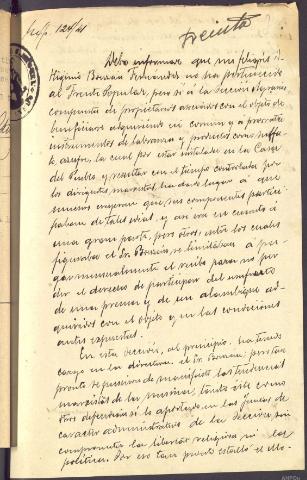 Treinta
Debo informar que mi feligrés D.
Higinio Fernández no ha pertenecido
al Frente Popular, pero sí a la Sección Agraria
compuesta de propietarios asociados con el objeto de
beneficiarse adquiriendo en común y a
instrumentos de labranza y productos como
azufre, la cual por estar instalada en la Casa
del Pueblo, y resultar con el tiempo controlada por
los dirigentes marxistas, ha dado lugar a que
muchos creyeran que sus componentes partici-
paban de tales ideas, y así era en cuanto a
una gran parte, pero otros, entre los cuales
figuraba el Sr. se limitaban a pa-
gar mensualmente el recibo para no per-
der el derecho de participar del usufructo
de una prensa y de un alambique ad-
quiridos con el objeto y en las condiciones
antes expuestas.
En esta Sección, al principio, ha tenido
cargo en la directiva el Sr. pero tan
pronto se pusieron de manifiesto las tendencias
marxistas de la misma, tanto éste como
otros
carácter administrativo de la Sección, sin
comprometer la libertad religiosa ni la
política. Por eso tan pronto estalló el